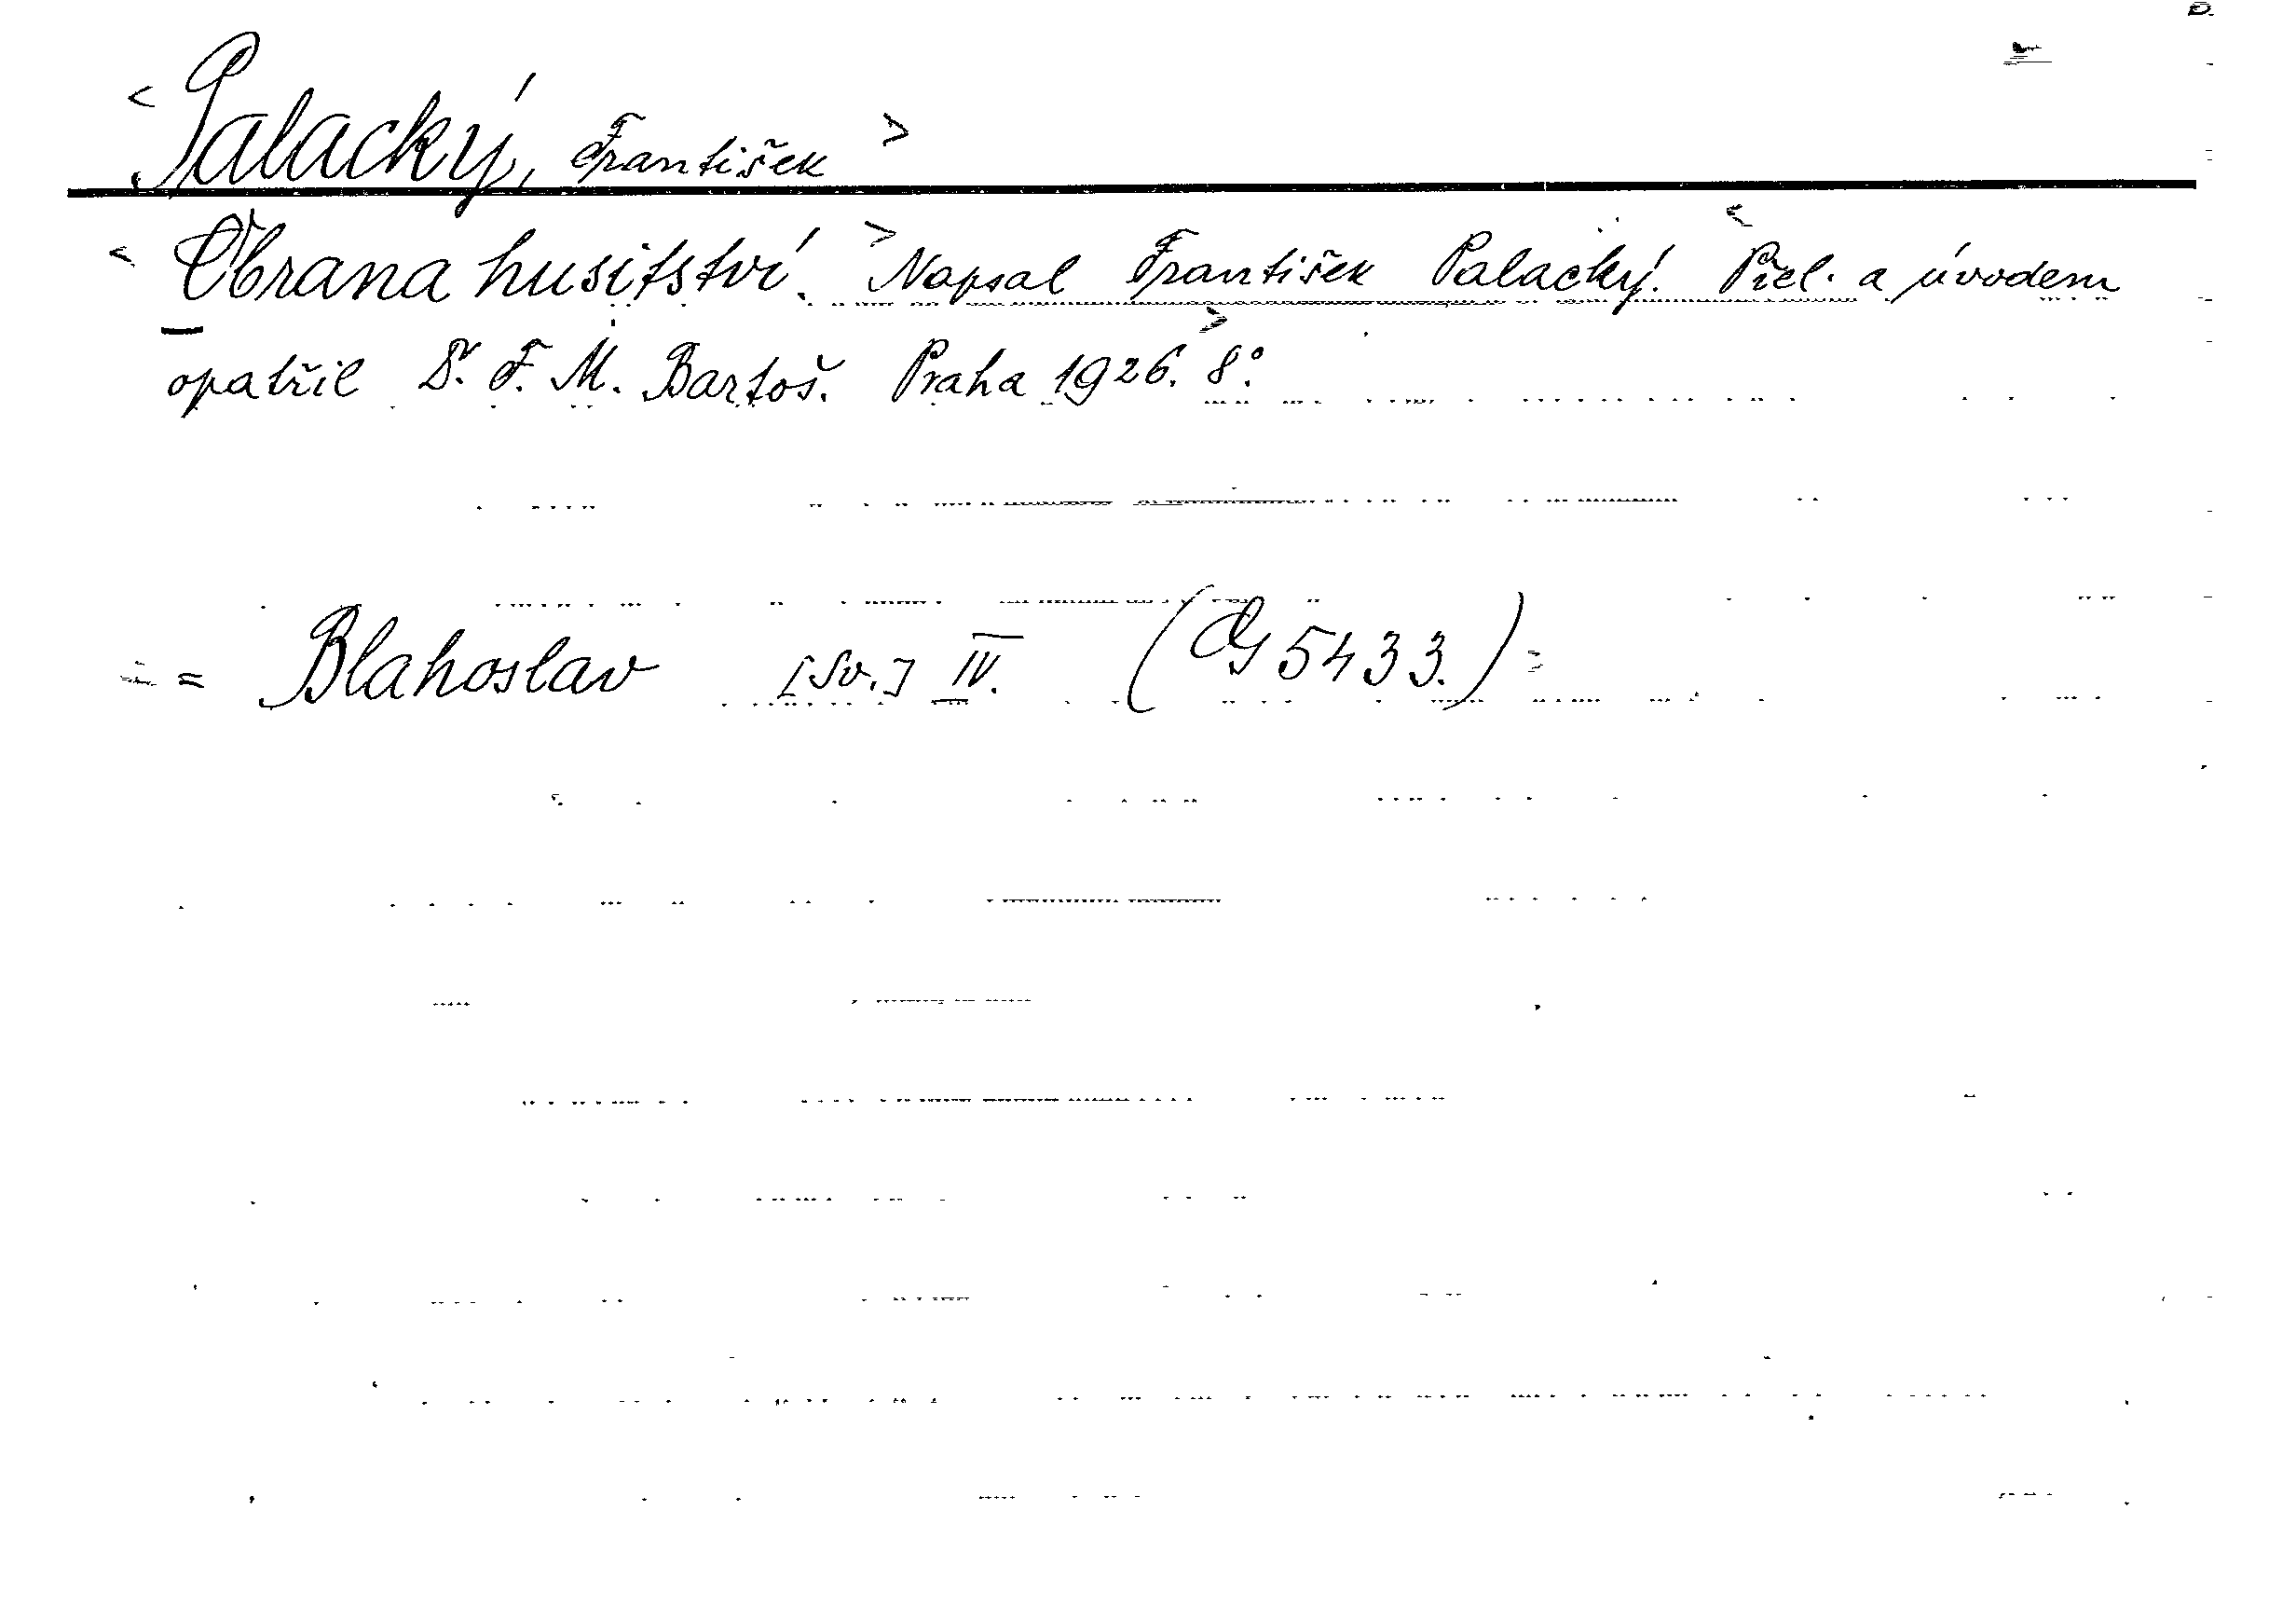 < Palacký, František >
< Obrana husitství. > Napsal František Palacký. < Přel. a úvodem
opatřil Dr. F. M. Bartoš. > Praha 1926. 8°.
= Blahoslav [Sv.] IV. (G 5433.)